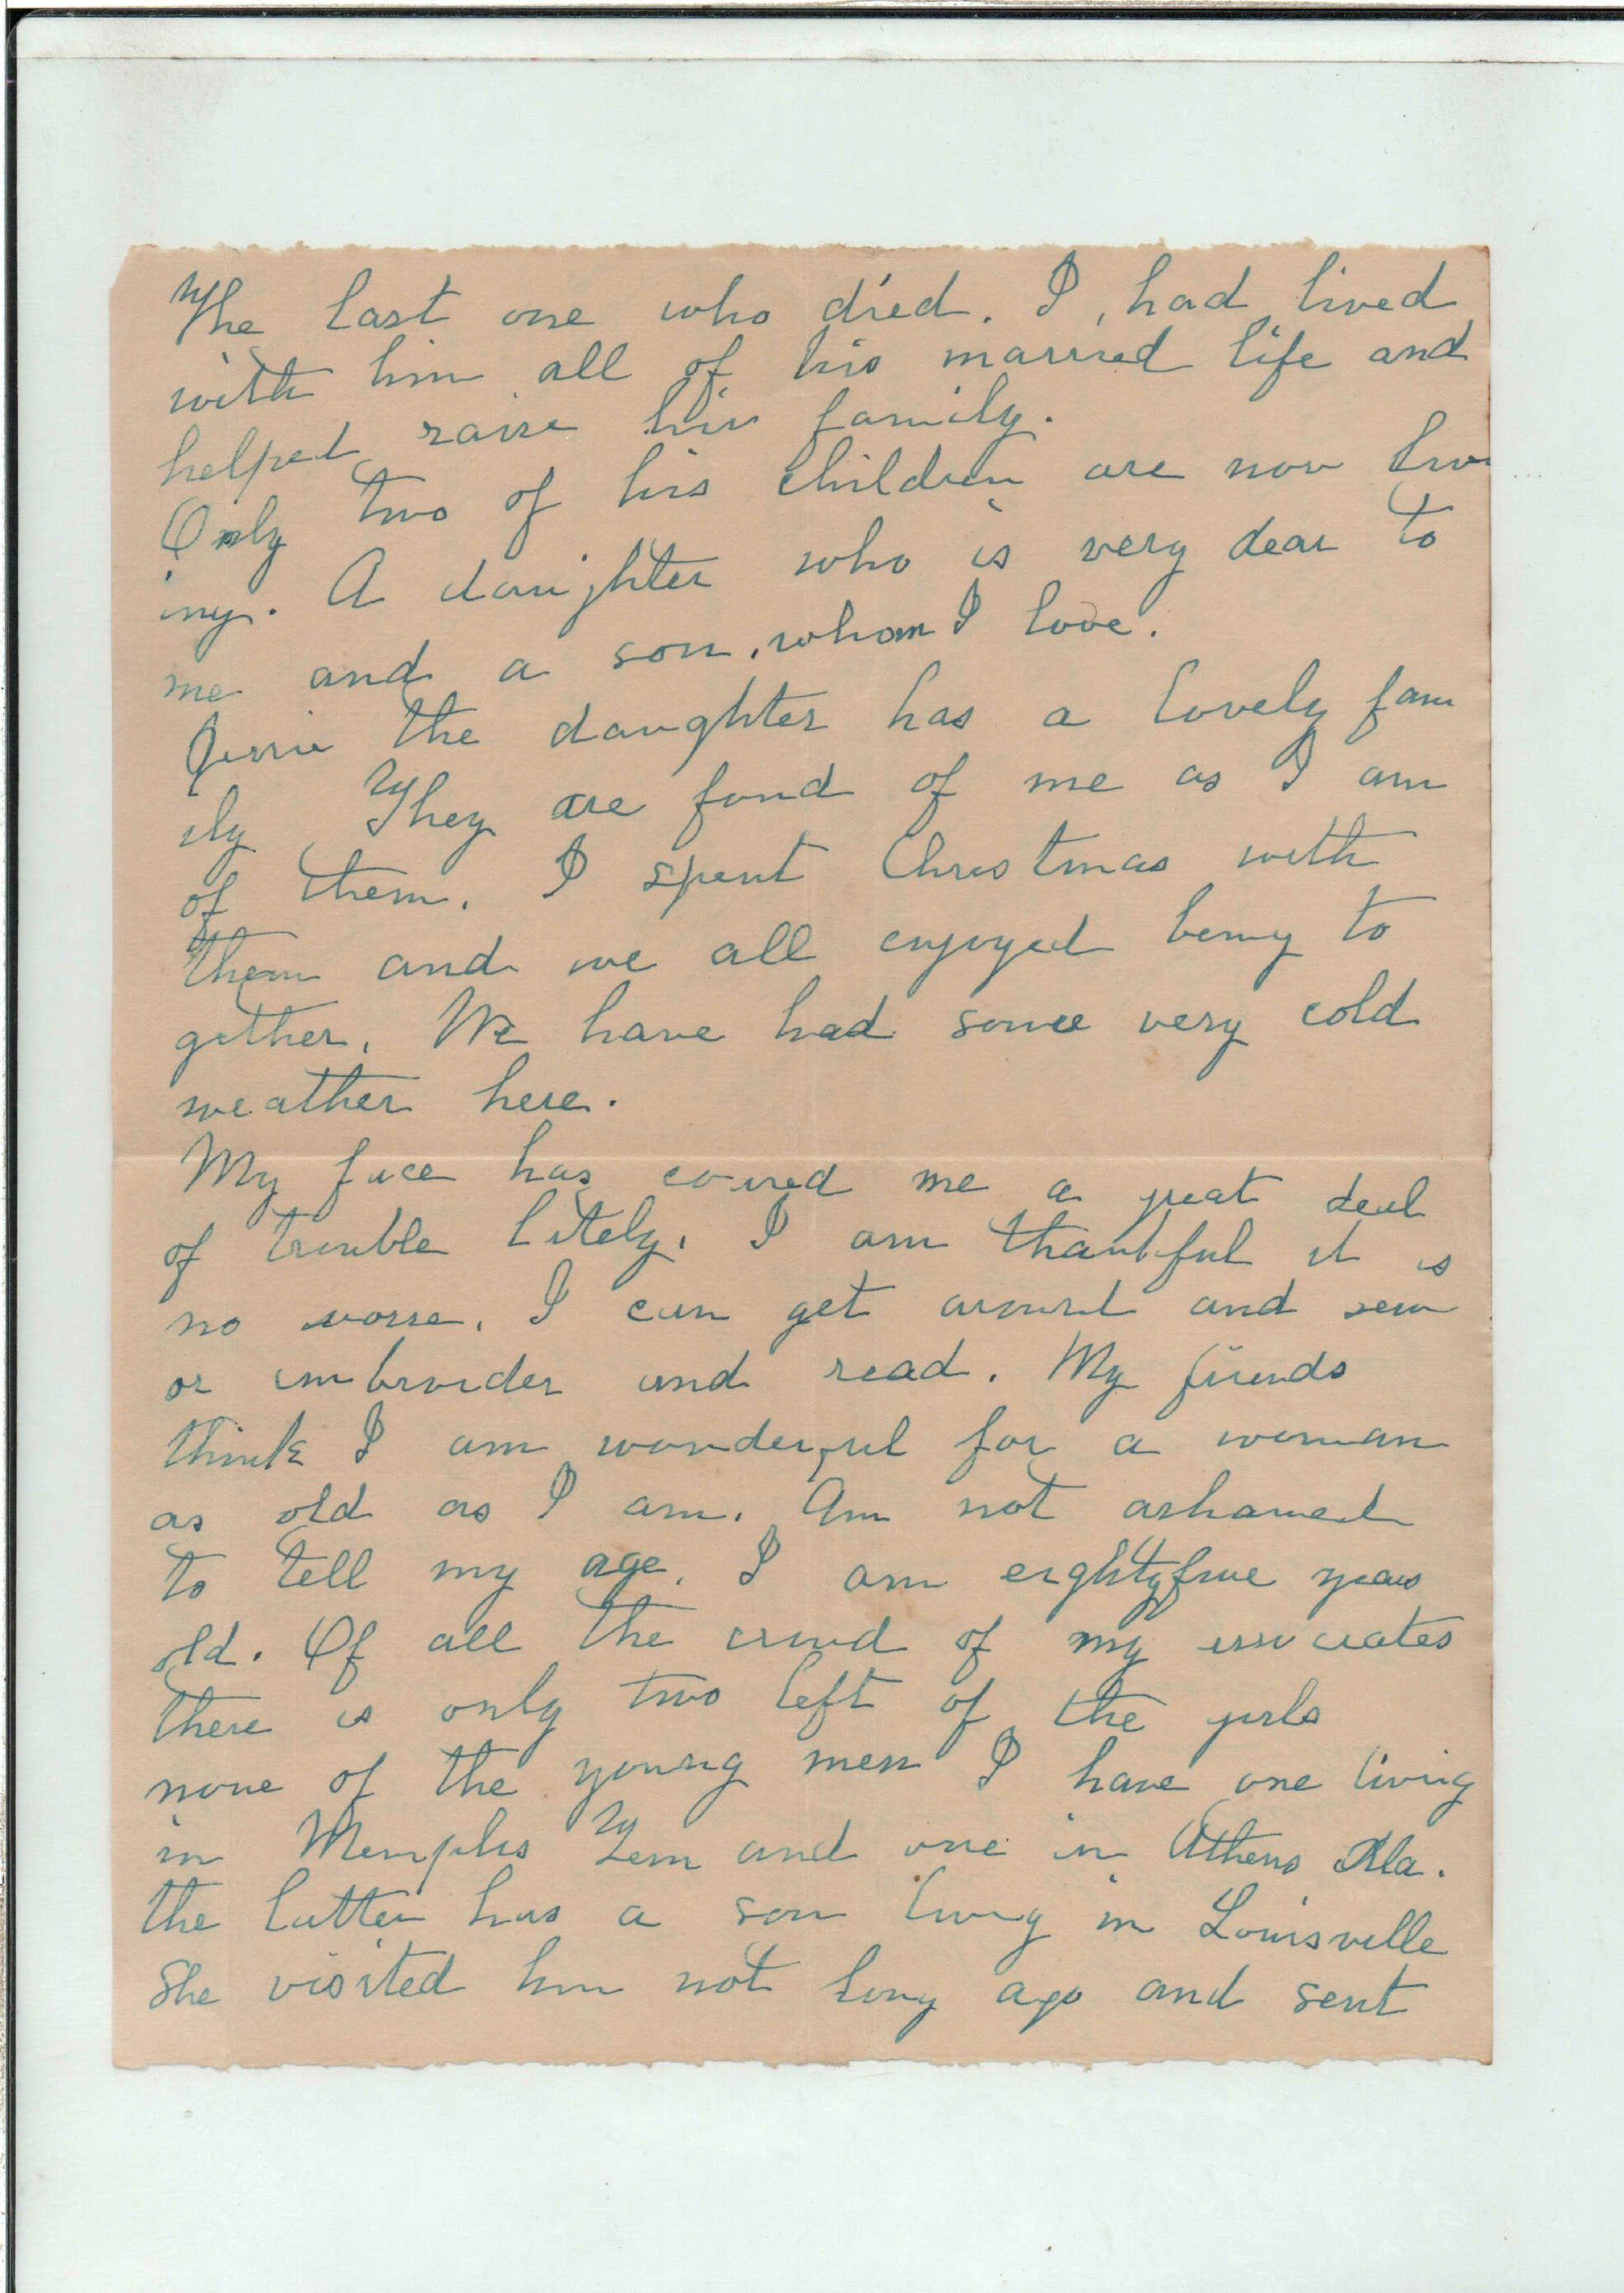 The last one who died. I, had lived
with him all of his married life and
helped raise his family.
Only two of his children are now liv
ing. A daughter who is very dear to
me and a son, whom I love.
the daughter has a lovely fam
ily They are fond of me as I am
of them. I spent Christmas with
them and we all enjoyed being to
gether. We have had some very cold
weather here.
My face has caused me a great deal
of trouble lately. I am thankful it is
no worse. I can get around and sew
or imbroider and read. My friends
think I am wonderful for a woman
as old as I am. Am not ashamed
to tell my age. I am eightyfive years
old. Of all the crowd of my associates
there is only two left of the girls
none of the young men I have one living
in Memphis Tenn and one in Athens Ala.
the latter has a son living in Louisville
She visited him not long ago and sent